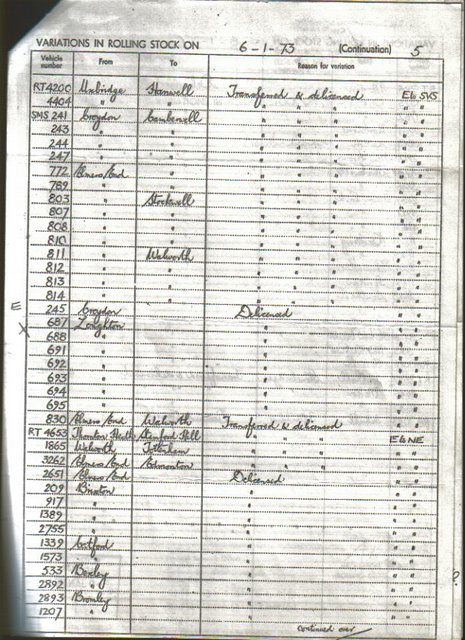 VARIATIONS IN ROLLING STOCK ON 6-1-73 (Continuation) 5
Vehicle number From To Reason for variation
RT4200 Uxbridge Hanwell Transferred & delicensed E to SVS
4404 " " " " " " "
SMS 241 Croydon Camberwell " " " " "
243 " " " " " " "
244 " " " " " " "
247 " " " " " " "
772 Elmers/End " " " " " "
789 " " " " " " "
803 " Stockwell " " " " "
807 " " " " " " "
808 " " " " " " "
810 " " " " " " "
811 " Walworth " " " " "
812 " " " " " " "
813 " " " " " " "
814 " " " " " " "
E 245 Croydon Delicensed " "
X 687 Loughton " " "
688 " " " "
691 " " " "
692 " " " "
693 " " " "
694 " " " "
695 " " " "
830 Elmers/End Walworth Transferred & delicensed " "
RT 4653 Thornton Heath Stamford Hill " " " E to NE
1865 Walworth Tottenham " " " " "
3262 Elmers/End Edmonton " " " " "
2651 Elmers/End Delicensed " "
209 Brixton " " "
917 " " " "
1389 " " " "
2755 " " " "
1339 Catford " " "
1573 " " " "
533 Bexley " " " ?
2892 " " " "
2893 Bromley " " "
1207 " " " "
continued over